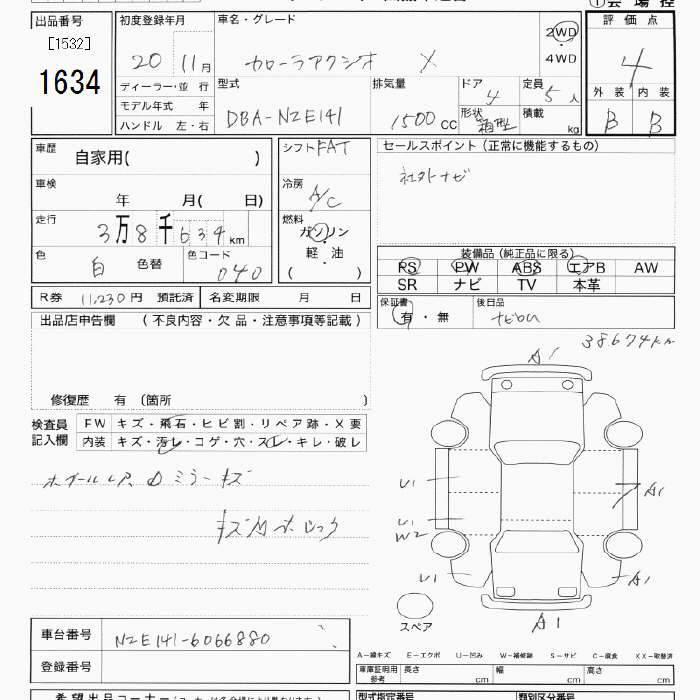 ①会場控
出品番号 初度登録年月 車名・グレード 2WD 評価点
[1532] 20 11月 カローラアクシオ X ・ 4
1634 4WD
ディーラー・並行 型式 排気量 ドア 定員 外装 内装
モデル年式 年 DBA-NZE141 1500cc 4 5人 B B
ハンドル 左・右 形状 箱型 積載 kg
車歴 自家用( ) シフト FAT セールスポイント (正常に機能するもの)
車検 年 月( 日) 冷房 A/C 社外ナビ
走行 3万8千634km 燃料 ガソリン
色 白 色替 色コード 040 軽・油
( )
装備品 (純正品に限る)
PS PW ABS エアB AW
SR ナビ TV 本革
R券 11,230円 預託済 名変期限 月 日
保証書 有・無 後日品 ナビROM
出品店申告欄 (不良内容・欠品・注意事項等記載)
38674km
修復歴 有 (箇所 )
検査員記入欄
FW キズ・飛石・ヒビ割・リペア跡・X要
内装 キズ・汚レ・コゲ・穴・スレ・キレ・破レ
A1
U1
A1
U1
W2
U1
A1
A1
スペア
車台番号 NZE141-6066880
登録番号
A-線キズ E-エクボ U-凹み W-補修跡 S-サビ C-腐食 XX-取替済
車庫証明用参考 長さ cm 幅 cm 高さ cm
希望出品コーナー
型式指定番号 類別区分番号